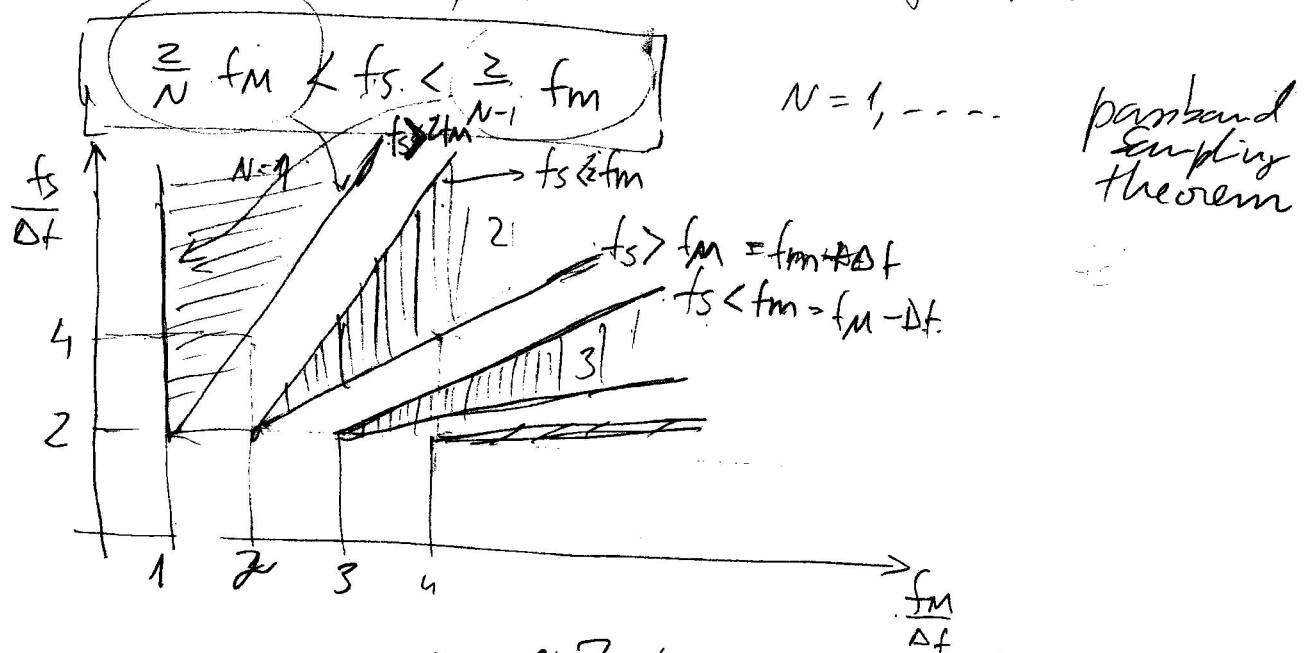 2/N fM < fs < 2/N-1 fm
N = 1, ----
passband
sampling
theorem
fs/Δf
N=1
fs>2fM
fs≤2fm
2
fs > fM = fm+Δf
fs < fm = fM - Δf.
4
3
2
1 2 3 4
fM/Δf